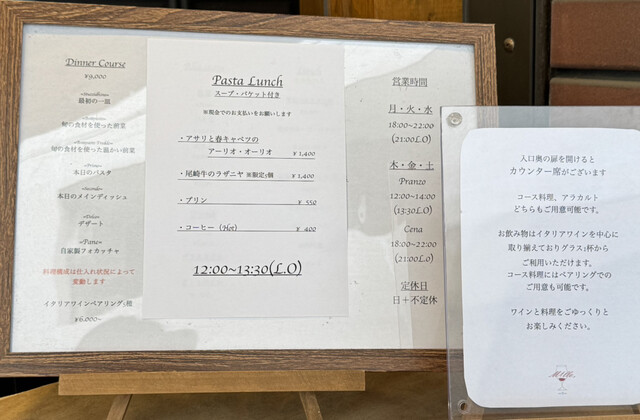 Dinner Course
¥9,000
最初の一皿
旬の食材を使った前菜
旬の食材を使った温かい前菜
本日のパスタ
~Secondo~
本日のメインディッシュ
~Dolce~
デザート
~Pane~
自家製フォカッチャ
料理構成は仕入れ状況によって
変動します
イタリアワインペアリング3種
¥6,000~
Pasta Lunch
スープ・バケット付き
※現金でのお支払いをお願いします
・アサリと春キャベツの
アーリオ・オーリオ ¥1,400
・尾崎牛のラザニヤ ※限定5個 ¥1,400
・プリン ¥550
・コーヒー (Hot) ¥400
12:00~13:30(L.O)
営業時間
月・火・水
18:00~22:00
(21:00L.O)
木・金・土
Pranzo
12:00~14:00
(13:30L.O)
Cena
18:00~22:00
(21:00L.o)
定休日
日＋不定休
入口奥の扉を開けると
カウンター席がございます
コース料理、アラカルト
どちらもご用意可能です。
お飲み物はイタリアワインを中心に
取り揃えておりグラス1杯から
ご利用いただけます。
コース料理にはペアリングでの
ご用意も可能です。
ワインと料理をごゆっくりと
お楽しみください。